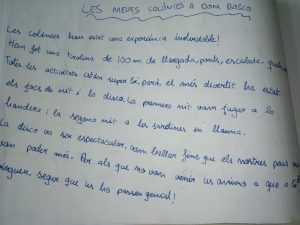 LES MEVES COLÒNIES A DOM BOSCO
Les colònies han estat una experiència inolvidable!
Hem fet una tirolina de 100 m de llargada, ponts, escalada,
Totes les activitats están super bé però, el més divertit ha estat
els jocs de nit i la disco. La primera nit vam jugar a la
bandera i la segona nit a les sardines en llauna.
La disco va ser espectacular, vam ballar fins que els nostres peus no
van poder més. Per als que no van venir us animo a que a 6è
vingueu, segur que us ho passeu genial!